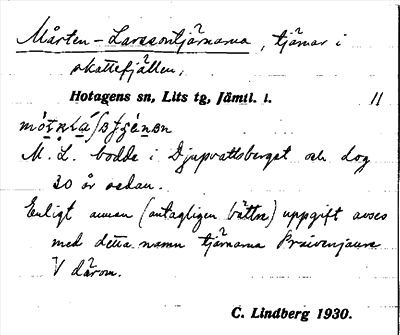 Mårten-Larssontjärnarna, tjärnar i
skattefjällen,
Hotagens sn, Lits tg, Jämtl. l. 11
M. L. bodde i Djupvattsberget och dog
30 år sedan.
Enligt annan (antagligen bättre) uppgift avses
med detta namn tjärnarna
V därom.
C. Lindberg 1930.